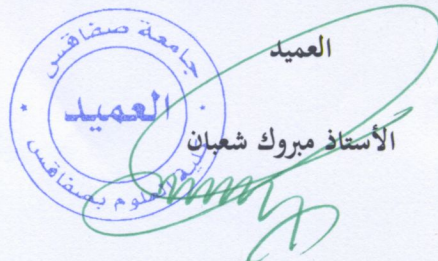 العميد
الأستاذ مبروك شعبان
جامعة صفاقس
العميد
كلية العلوم بصفاقس